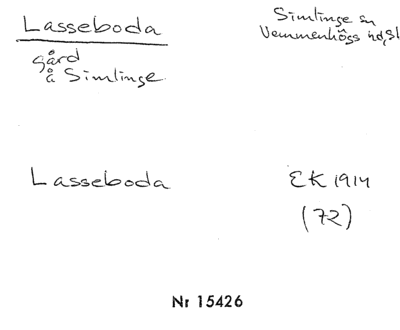 Lasseboda
Simlinge sn
Vemmenhögs hd, Sk
gård
å Simlinge
Lasseboda
EK 1914
(72)
Nr 15426